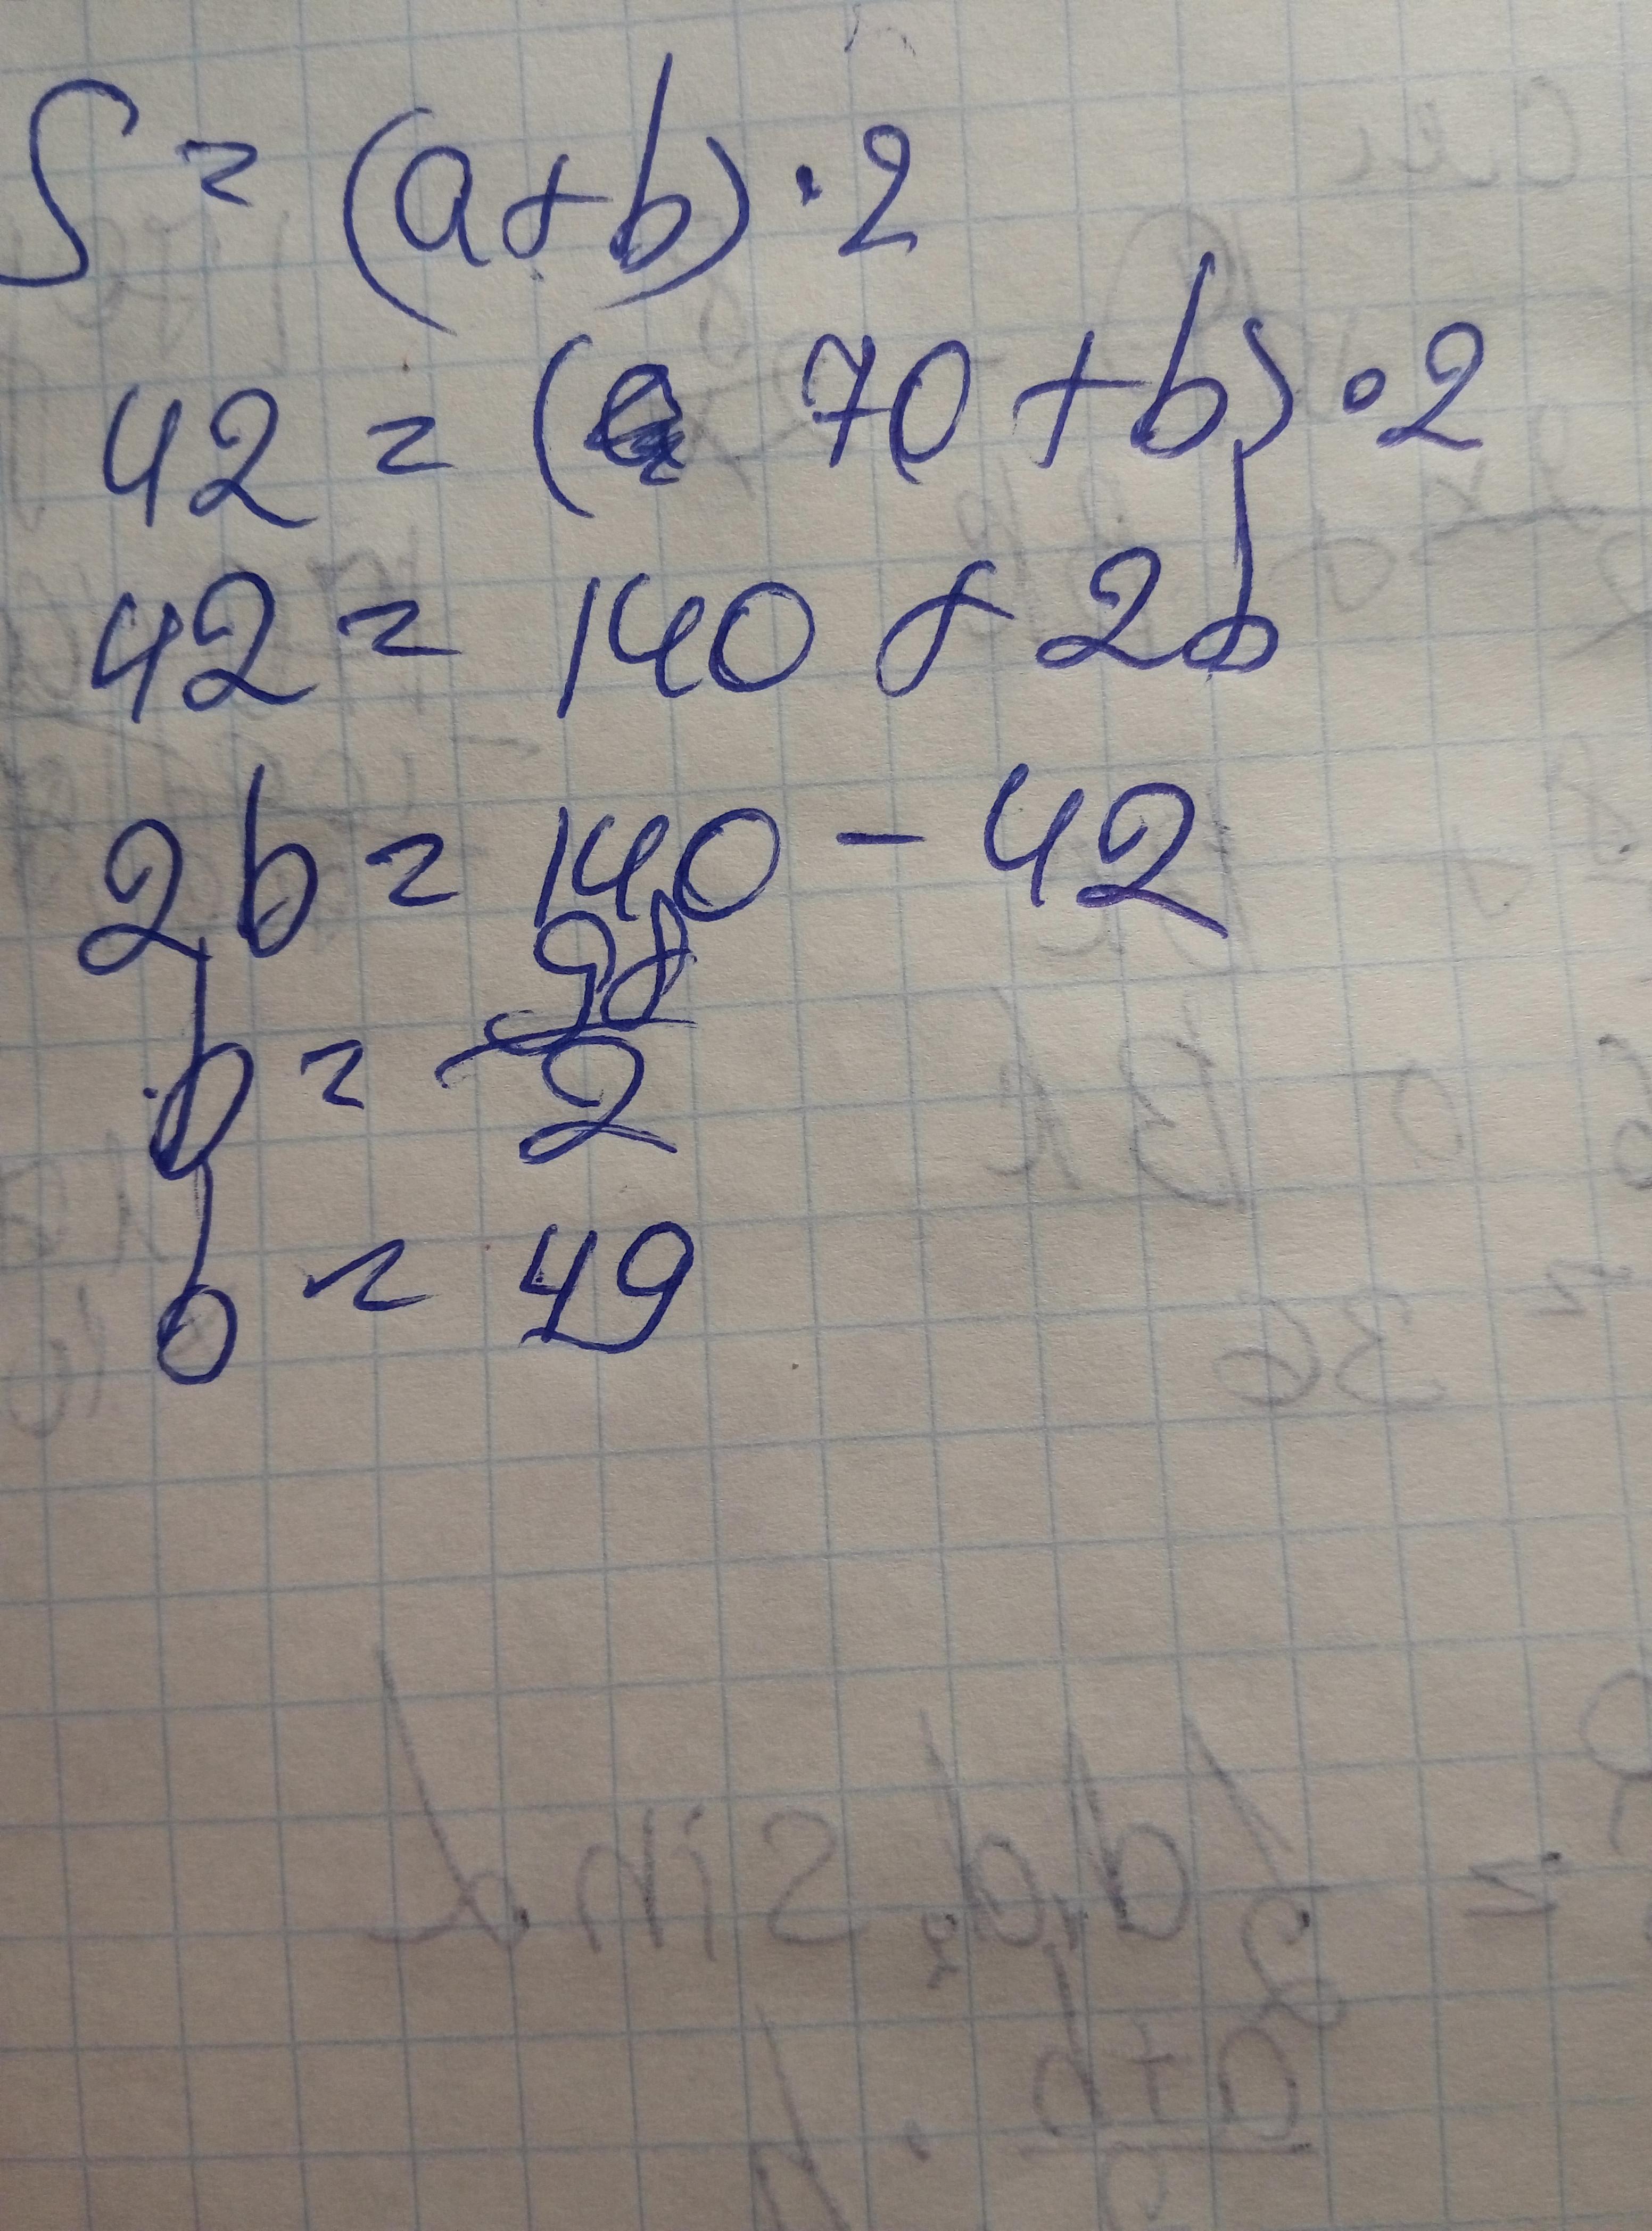 S = (a+b) · 2
42 = ( 70 + b) · 2
42 = 140 + 2b
2b = 140 - 42
b = 98/2
b = 49